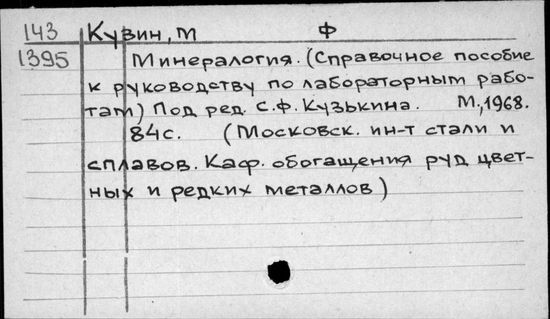 143 Кузин, М Ф
1395 Минералогия. (Справочное пособие
к руководству по лабораторным рабо-
там) Под ред. С.Ф. Кузькина. М., 1968.
84с. (Московск. ин-т стали и
сплавов. Каф. обогащения руд цвет-
ных и редких металлов)